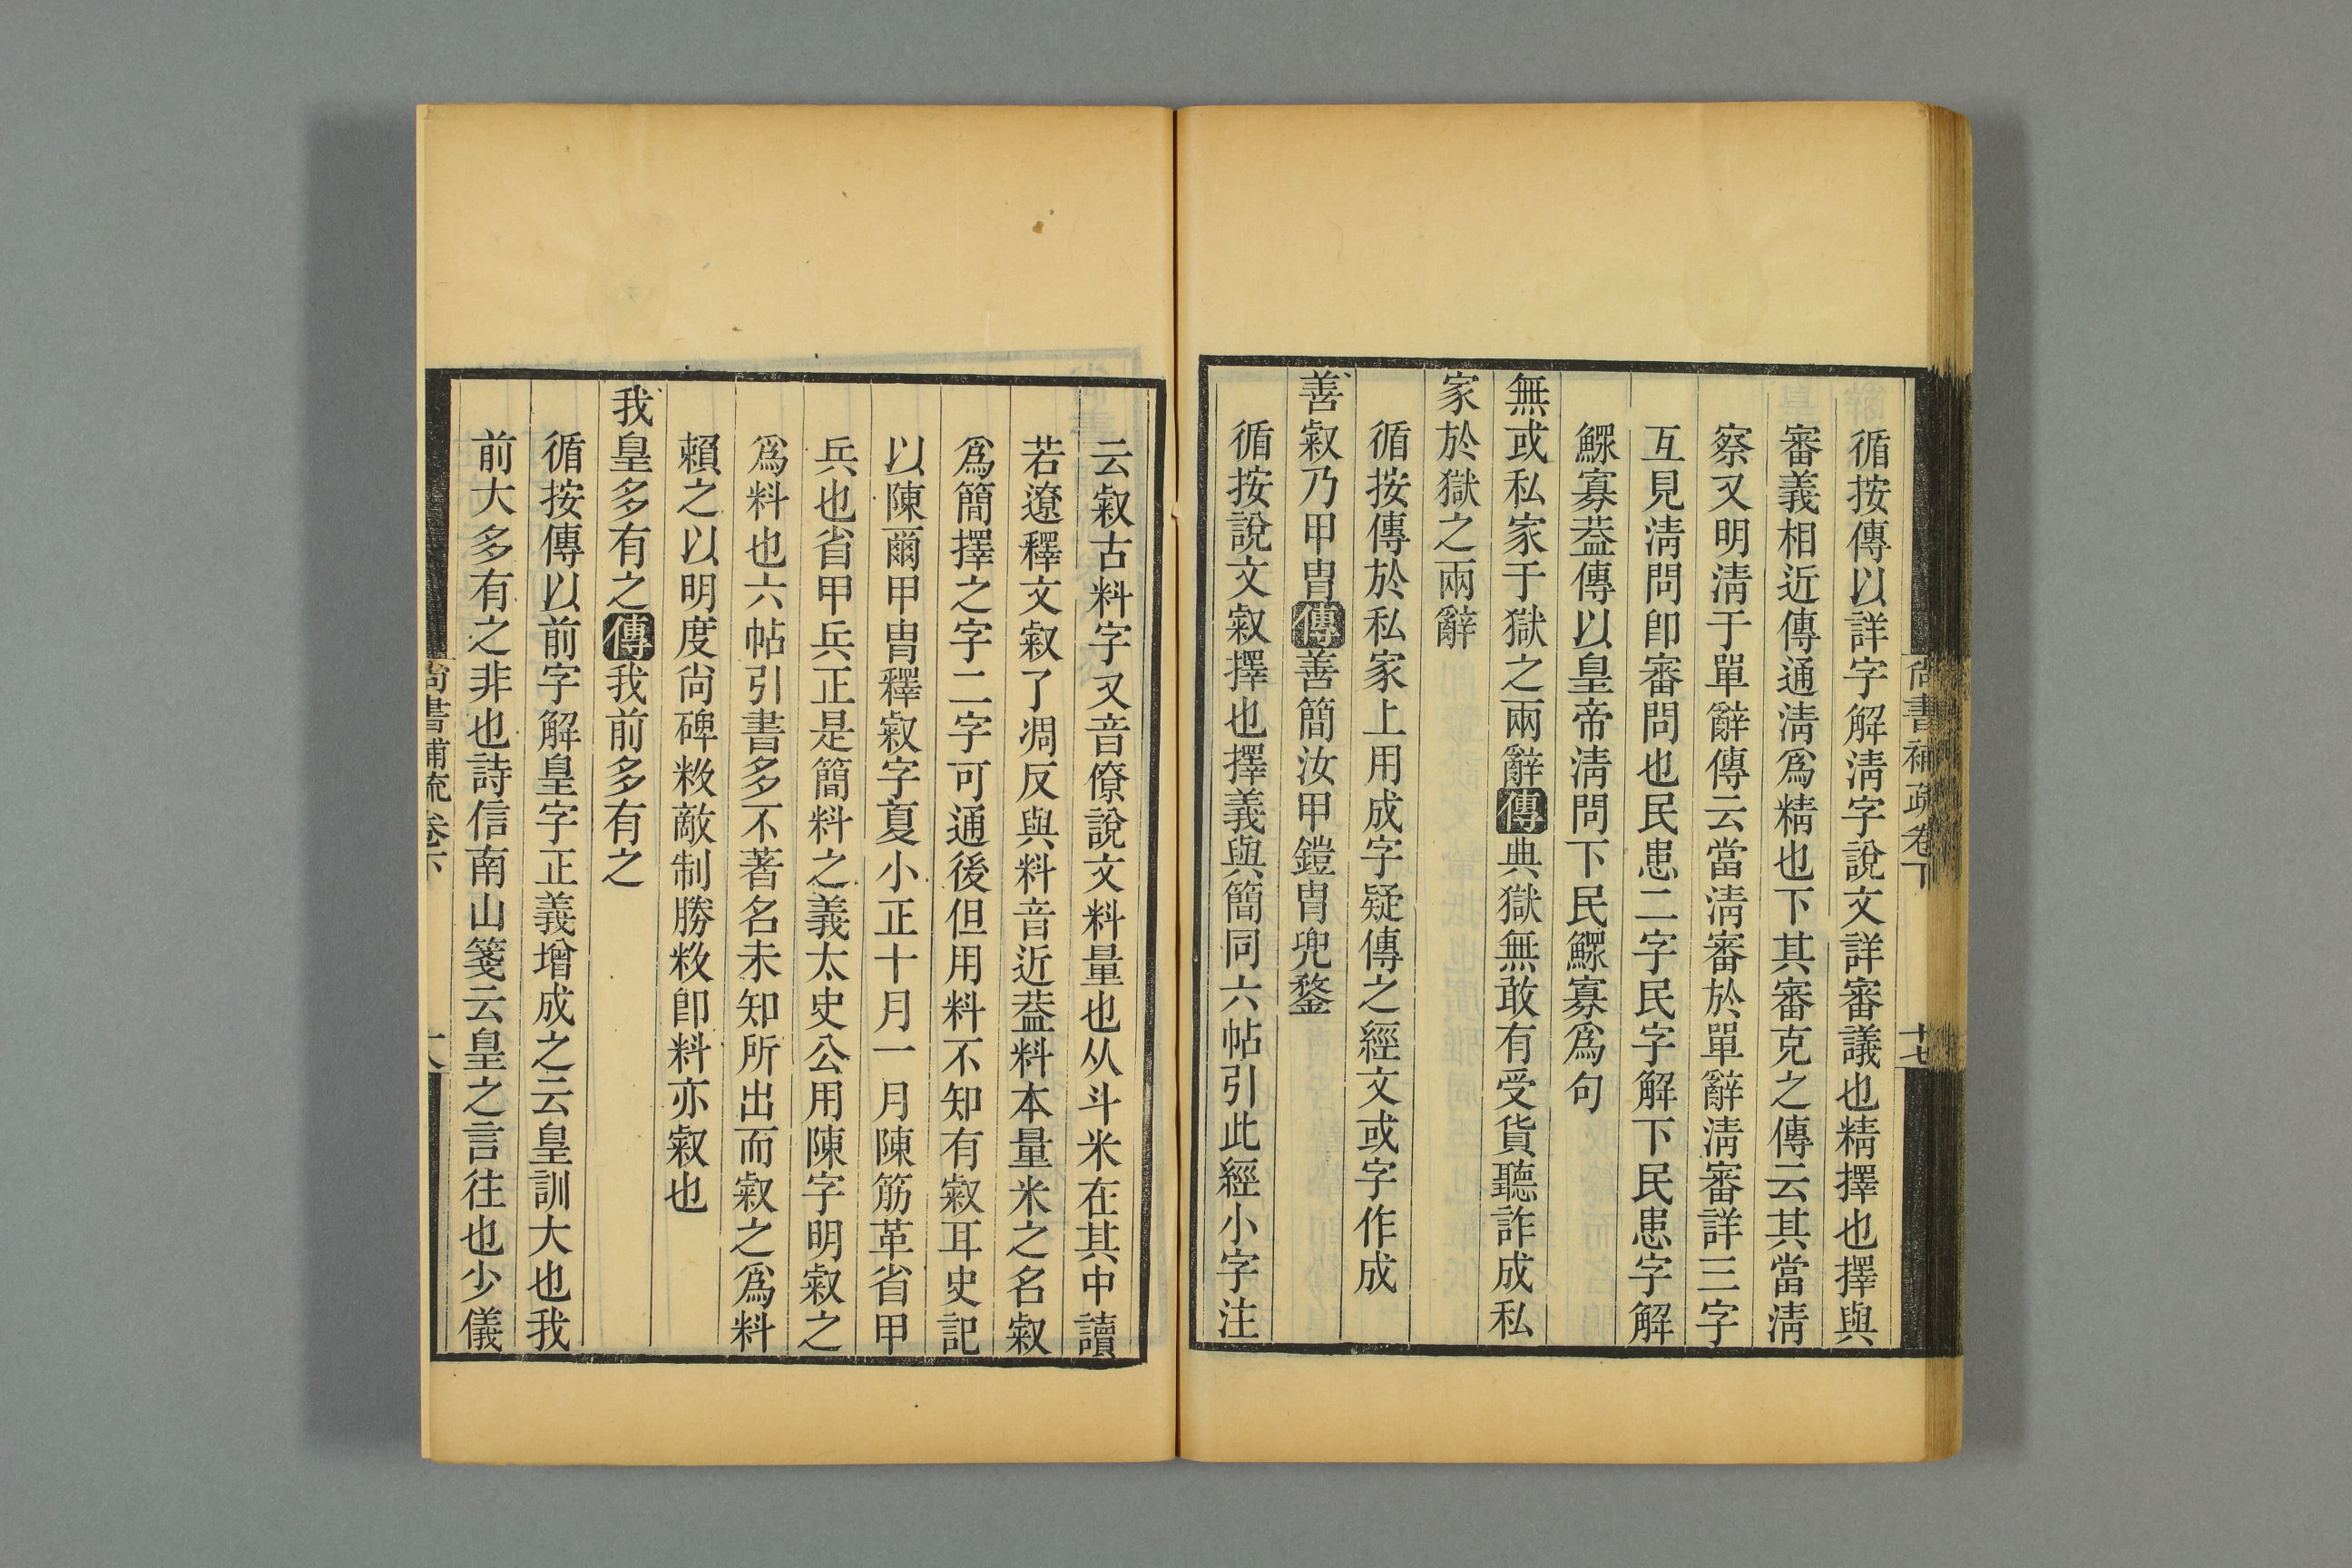 循按傳以詳字解淸字說文詳審議也精擇也擇與
審義相近傳通淸爲精也下其審克之傳云其當淸
察又明淸于單辭傳云當淸審於單辭淸審詳三字
互見淸問卽審問也民患二字民字解下民患字解
鰥寡葢傳以皇帝淸問下民鰥寡爲句
無或私家于獄之兩辭傳典獄無敢有受貨聽詐成私
家於獄之兩辭
循按傳於私家上用成字疑傳之經文或字作成
善敹乃甲冑傳善簡汝甲鎧冑兜鍪
循按說文敹擇也擇義與簡同六帖引此經小字注
尙書補疏卷下
十七
云敹古料字又音僚說文料量也从斗米在其中讀
若遼釋文敹了凋反與料音近葢料本量米之名敹
爲簡擇之字二字可通後但用料不知有敹耳史記
以陳爾甲冑釋敹字夏小正十月一月陳筋革省甲
兵也省甲兵正是簡料之義太史公用陳字明敹之
爲料也六帖引書多不著名未知所出而敹之爲料
賴之以明度尙碑敹敵制勝敹卽料亦敹也
我皇多有之傳我前多有之
循按傳以前字解皇字正義增成之云皇訓大也我
前大多有之非也詩信南山箋云皇之言往也少儀
尙書補疏卷下